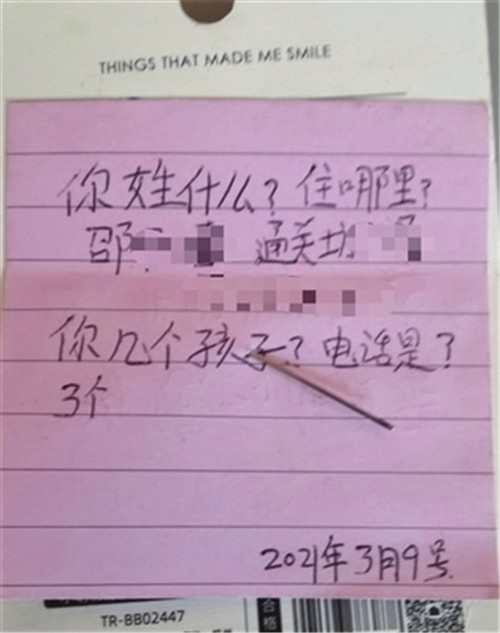 THINGS THAT MADE ME SMILE
你姓什么？住哪里？
邵 通关坊
你几个孩子？电话是？
3个
2021年3月9号.
TR-BB02447
合格